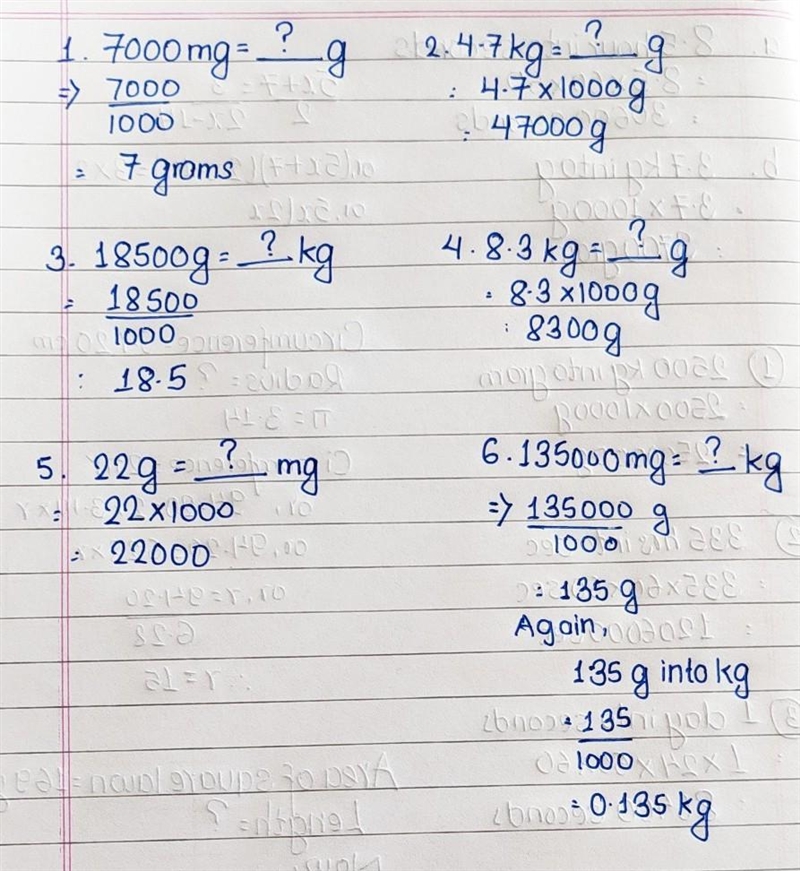 1. 7000mg = ? g
=> 7000
1000
= 7 grams
2. 4.7 kg = ? g
: 4.7 x 1000g
: 47000g
3. 18500g = ? kg
= 18500
1000
: 18.5
4. 8.3 kg = ? g
= 8.3 x 1000g
: 8300g
5. 22g = ? mg
= 22 x 1000
= 22000
6. 135000mg = ? kg
=> 135000 g
1000
= 135 g
Again,
135 g into kg
= 135
1000
= 0.135 kg